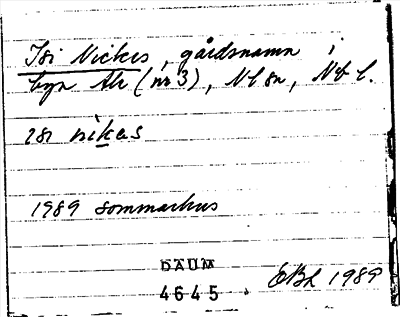 Isi Nickes, gårdsnamn i
byn Ale (nr 3), Nl sn, Nb l.
isi nikas
1989 sommarhus
DAUM
4645
EBL 1989